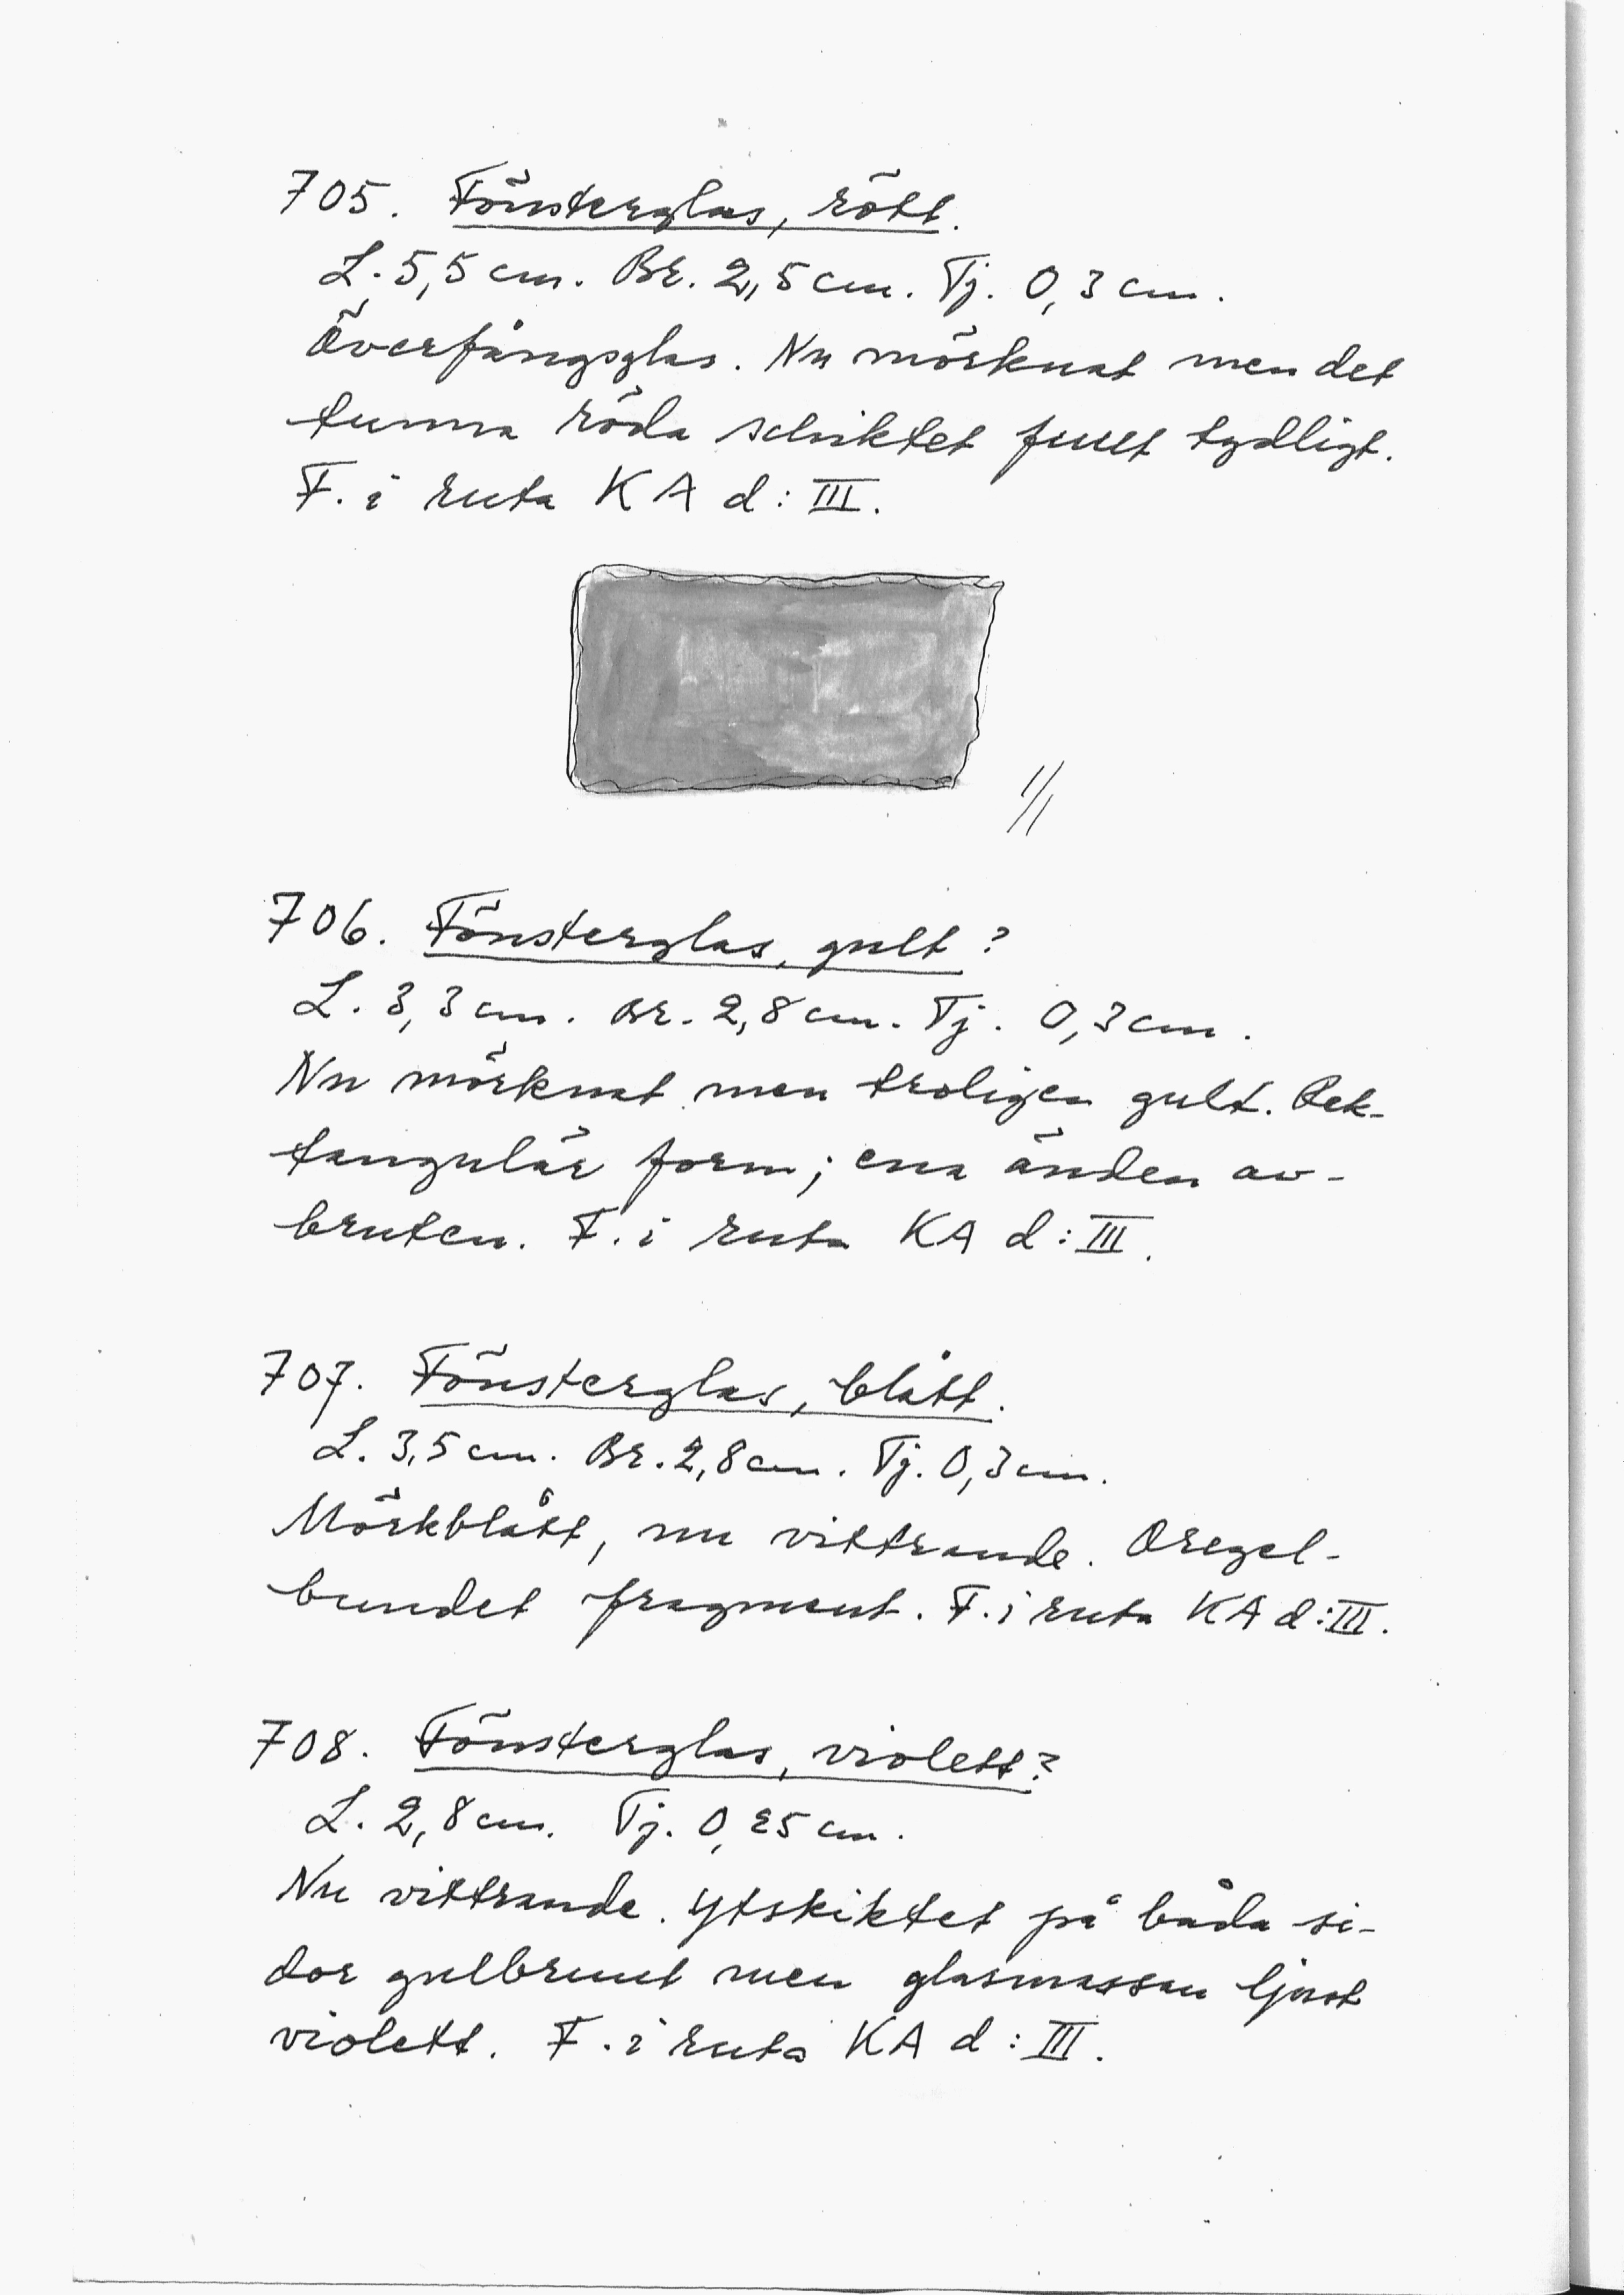 705. Fönsterglas, rött.
L. 5,5 cm. Br. 2,5 cm. Tj. 0,3 cm.
Överfångsglas. Nu mörknat men det
tunna röda schiktet fullt tydligt.
F. i ruta KA d:III.
1/1
706. Fönsterglas, gult?
L. 3,3 cm. Br. 2,8 cm. Tj. 0,3 cm.
Nu mörknat men troligen gult. Rek-
tangulär form; ena änden av-
bruten. F. i ruta KA d:III.
707. Fönsterglas, blått.
L. 3,5 cm. Br. 2,8 cm. Tj. 0,3 cm.
Mörkblått, nu vittrande. Oregel-
bundet fragment. F. i ruta KA d:III.
708. Fönsterglas, violett?
L. 2,8 cm. Tj. 0,25 cm.
Nu vittrande. Ytskiktet på båda si-
dor gulbrunt men glasmassan ljust
violett. F. i ruta KA d:III.